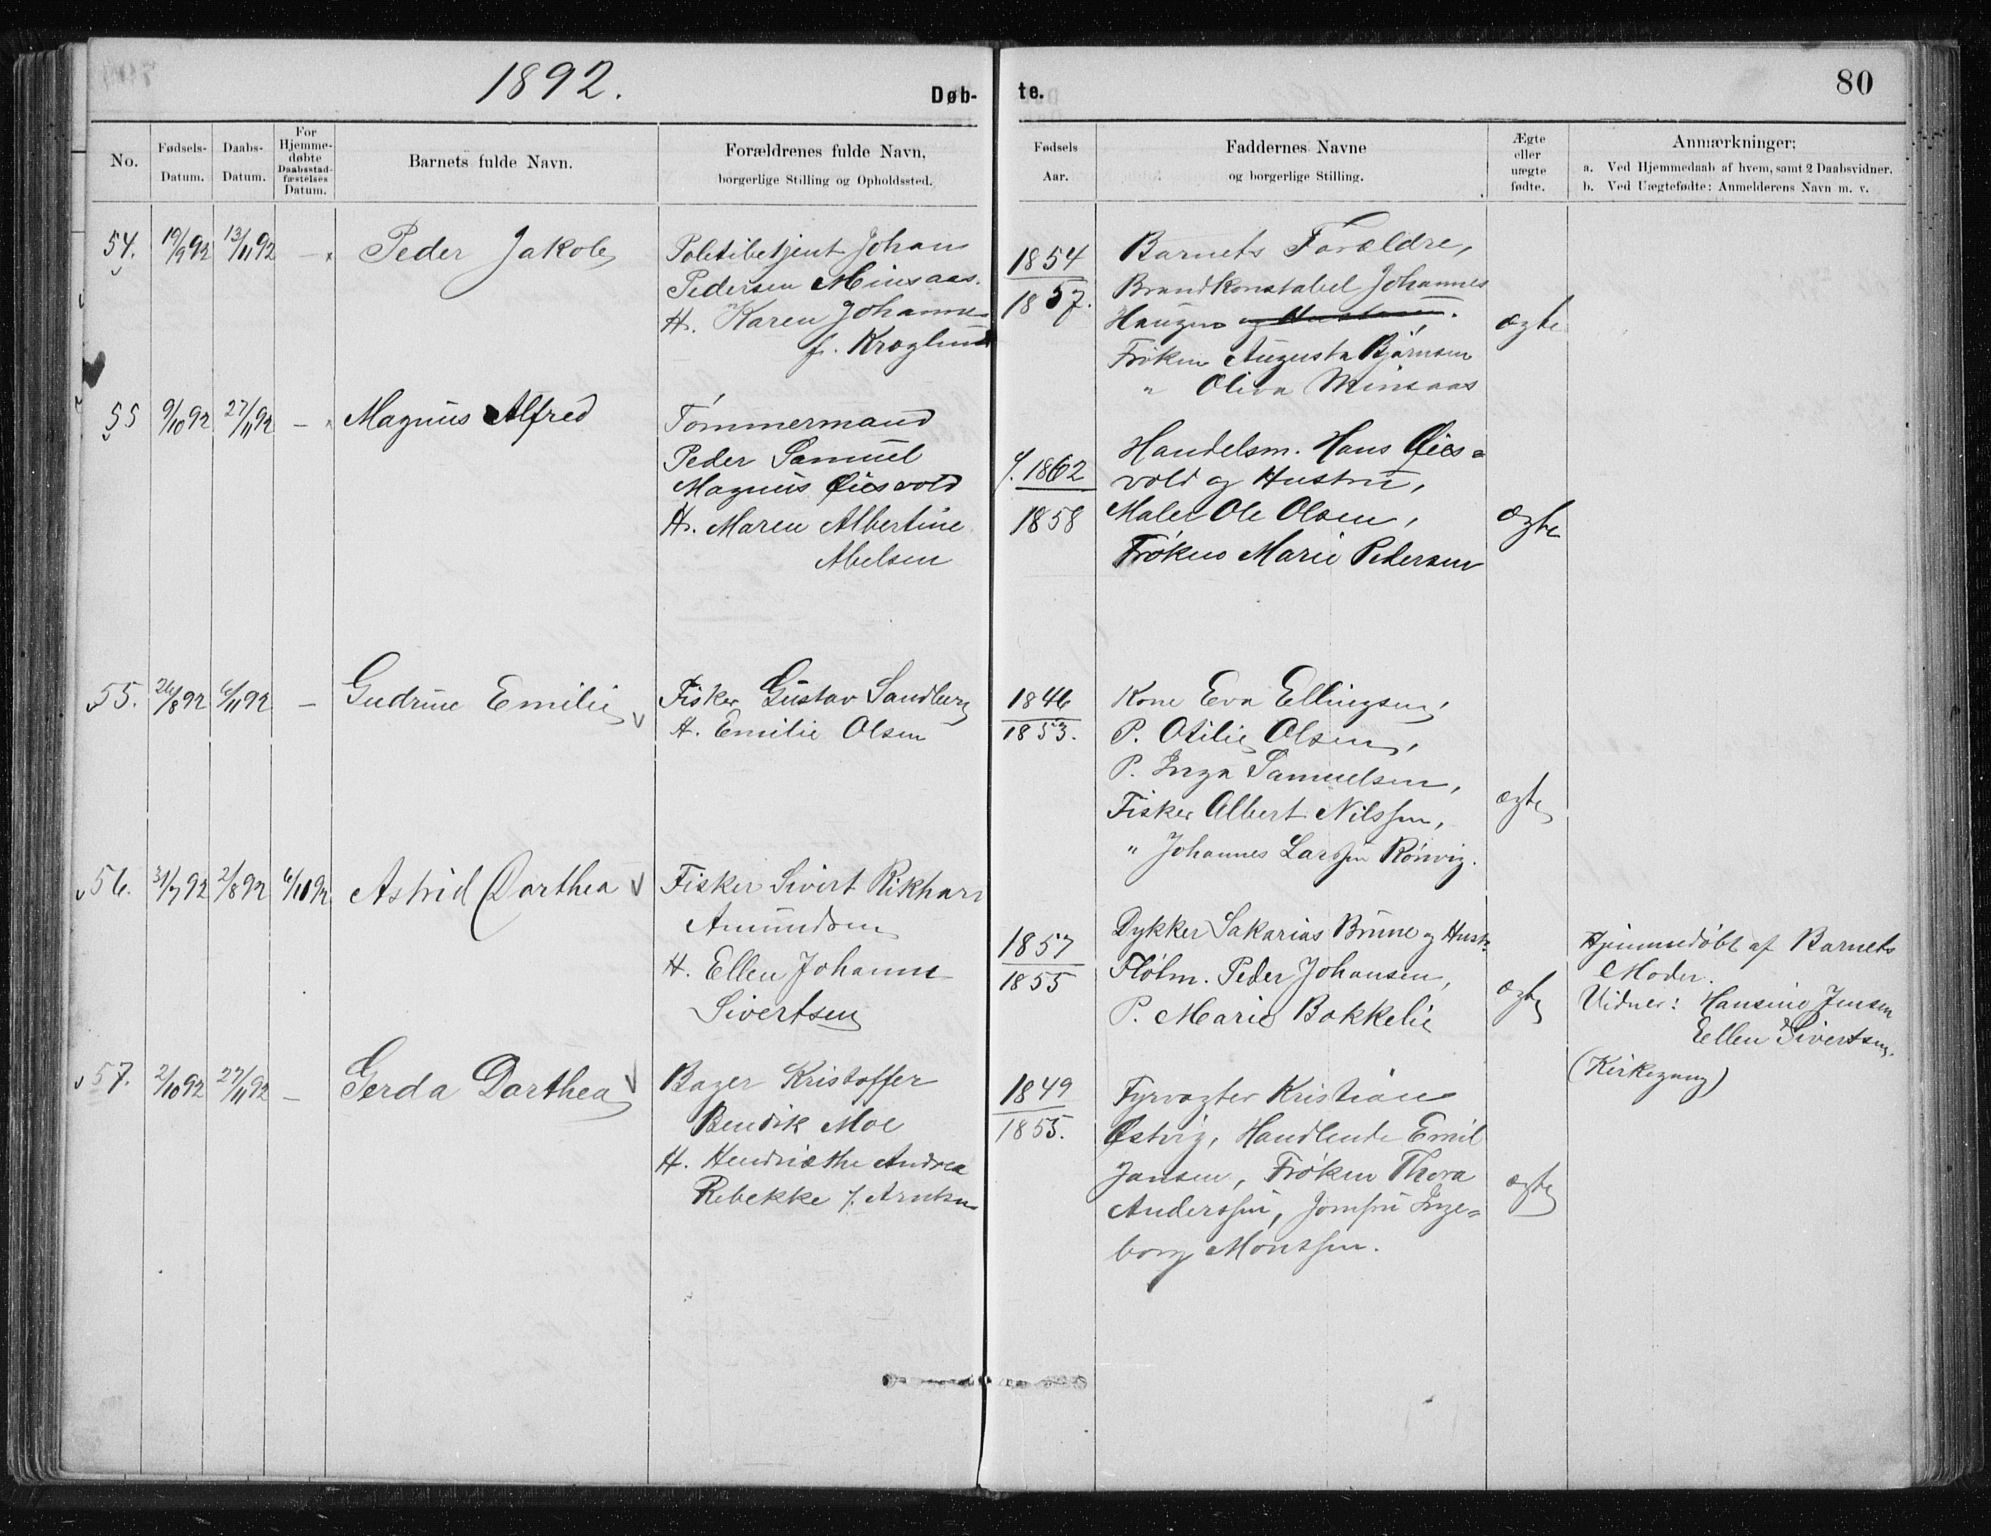 1892.
Døb-
te.
80
No.
Fødsels-
Datum.
Daabs-
Datum.
For
Hjemme-
døbte
Daabsstad-
fæstelses
Datum.
Barnets fulde Navn.
Forældrenes fulde Navn,
borgerlige Stilling og Opholdssted.
Fødsels
Aar.
Faddernes Navne
og borgerlige Stilling.
Ægte
eller
uægte
fødte.
Anmærkninger:
a. Ved Hjemmedaab af hvem, samt 2 Daabsvidner.
b. Ved Uægtefødte: Anmelderens Navn m. v.
54. 19/9 92 13/11 92 - Peder Jakob
Politibetjent Johan
Pedersen Minsaas.
H. Karen Johanne
f. Kroglund
1854
1857.
Barnets Forældre,
Brandkonstabel Johannes
Haugen og Hustru.
Frøken Augusta Bjørnsen
" Oliva Minsaas
ægte
55 9/10 92 27/11 92 - Magnus Alfred
Tømmermand
Peder Samuel
Magnus Øiesvold
H. Maren Albertine
Abelsen
f. 1862
1858
Handelsm. Hans Øies-
vold og Hustru,
Maler Ole Olsen,
Frøken Marie Pedersen
ægte
55. 26/8 92 6/11 92 - Gudrun Emilie
Fisker Gustav Sandberg
H. Emilie Olsen
1846
1853.
Kone Eva Ellingsen,
P. Otilie Olsen,
P. Inga Samuelsen,
Fisker Albert Nilssen,
" Johannes Larssen Rønvig.
ægte
56. 31/7 92 2/8 92 6/11 92 Astrid Dorthea
Fisker Sivert Rikhard
Amundsen
H. Ellen Johanne
Sivertsen
1857
1855
Dykker Sakarias Brune og Hustr.
Fløtm. Peder Johansen,
P. Marie Bakkelie
ægte
Hjemmedøbt af Barnets
Moder.
Vidner: Hansine Jensen
Ellen Sivertsen.
(Kirkegang)
57. 2/10 92 27/11 92 - Gerda Dorthea
Bager Kristoffer
Bendik Moe
H. Hendrikke Andrea
Rebekke f. Arntsen
1849
1855.
Fyrvogter Kristian
Østvig, Handlende Emil
Jansen, Frøken Thora
Anderssen, Jomfru Inge-
borg Monssen.
ægte